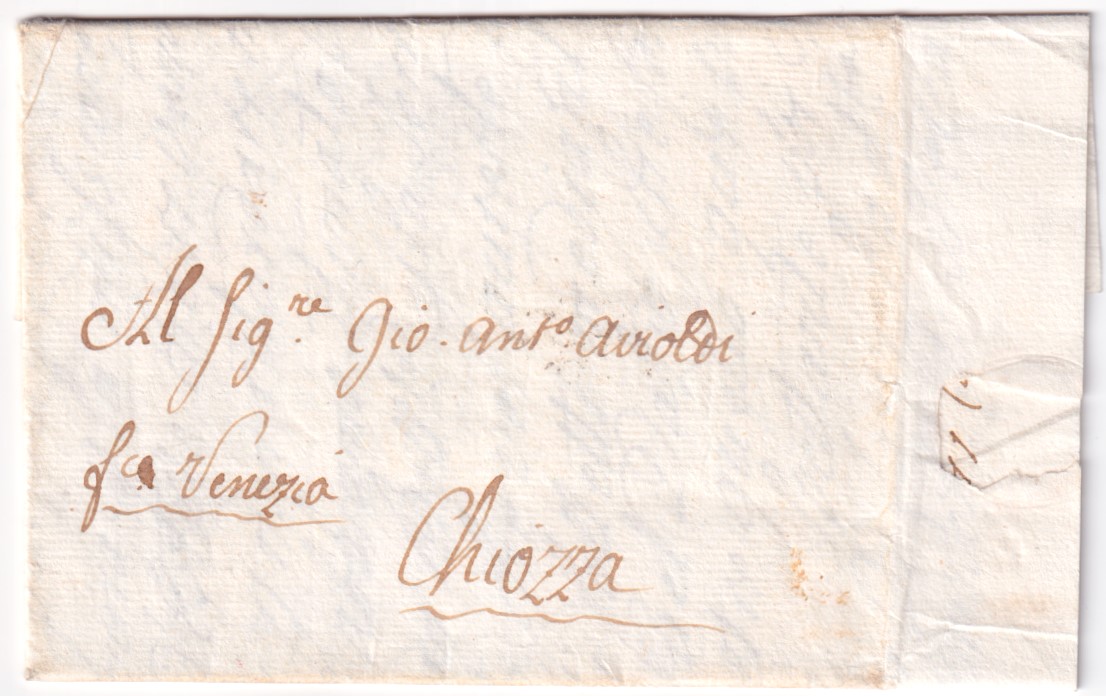 Al Sig.re Gio. Anto. Airoldi
fca Venezia
Chiozza